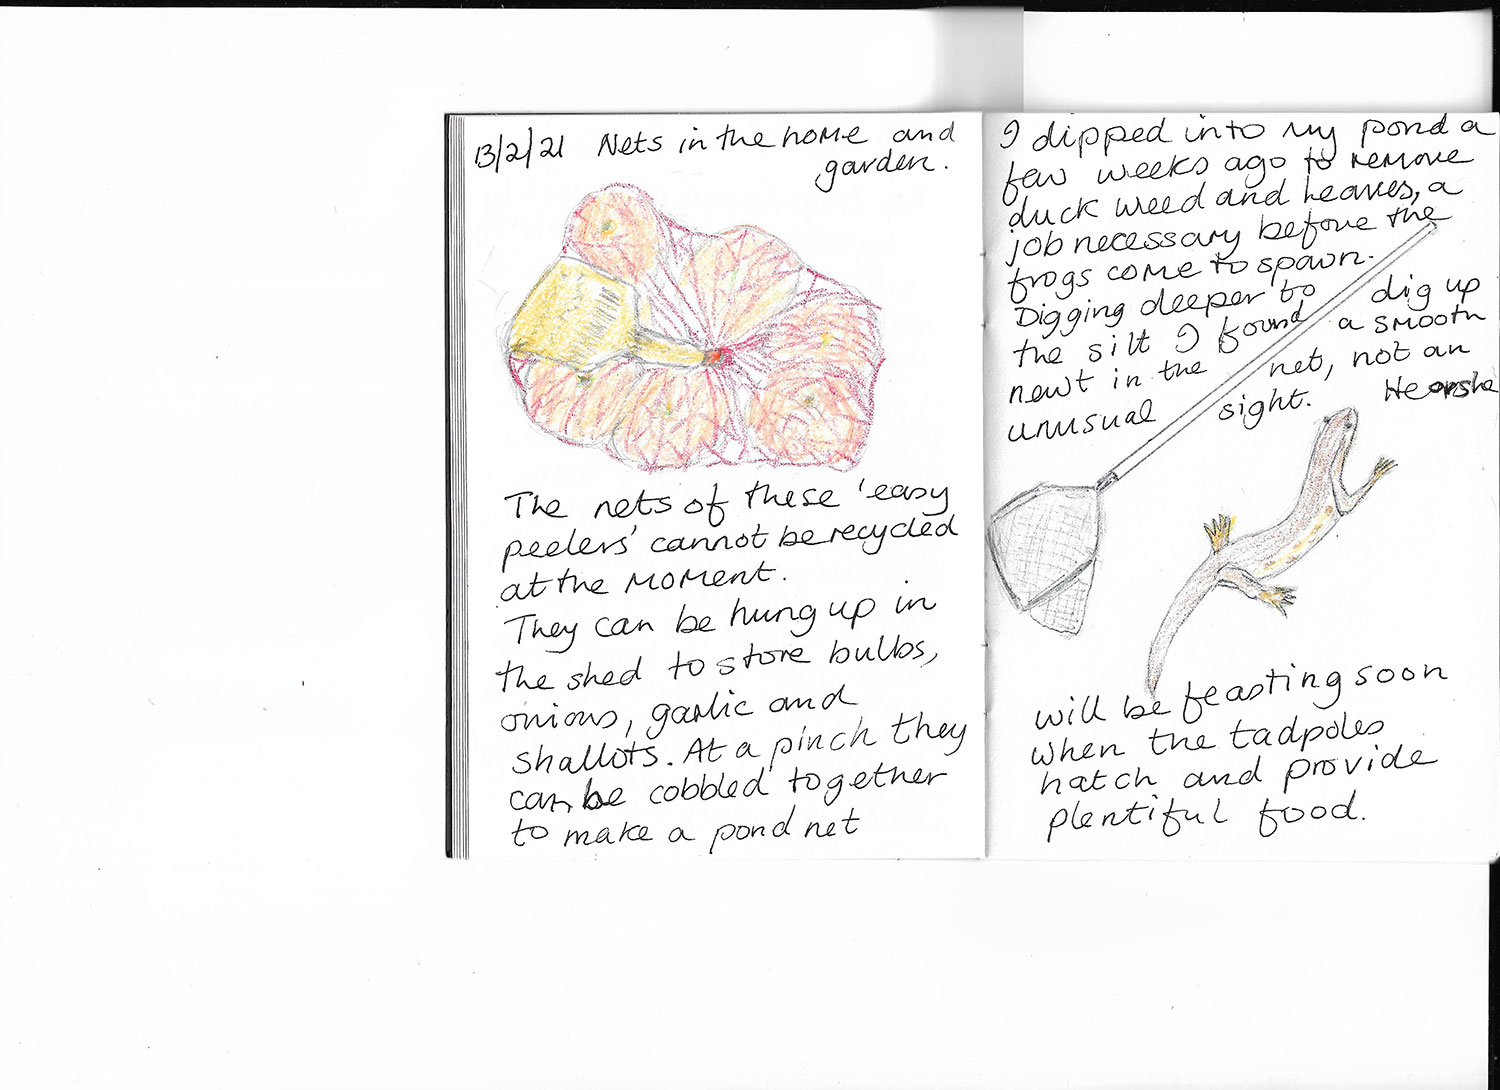 13/2/21 Nets in the home and
garden.
The nets of these 'easy
peelers' cannot be recycled
at the moment.
They can be hung up in
the shed to store bulbs,
onions, garlic and
shallots. At a pinch they
can be cobbled together
to make a pond net
I dipped into my pond a
few weeks ago to remove
duck weed and leaves, a
job necessary before the
frogs come to spawn.
Digging deeper to dig up
the silt I found a smooth
newt in the net, not an
unusual sight. He or she
will be feasting soon
when the tadpoles
hatch and provide
plentiful food.